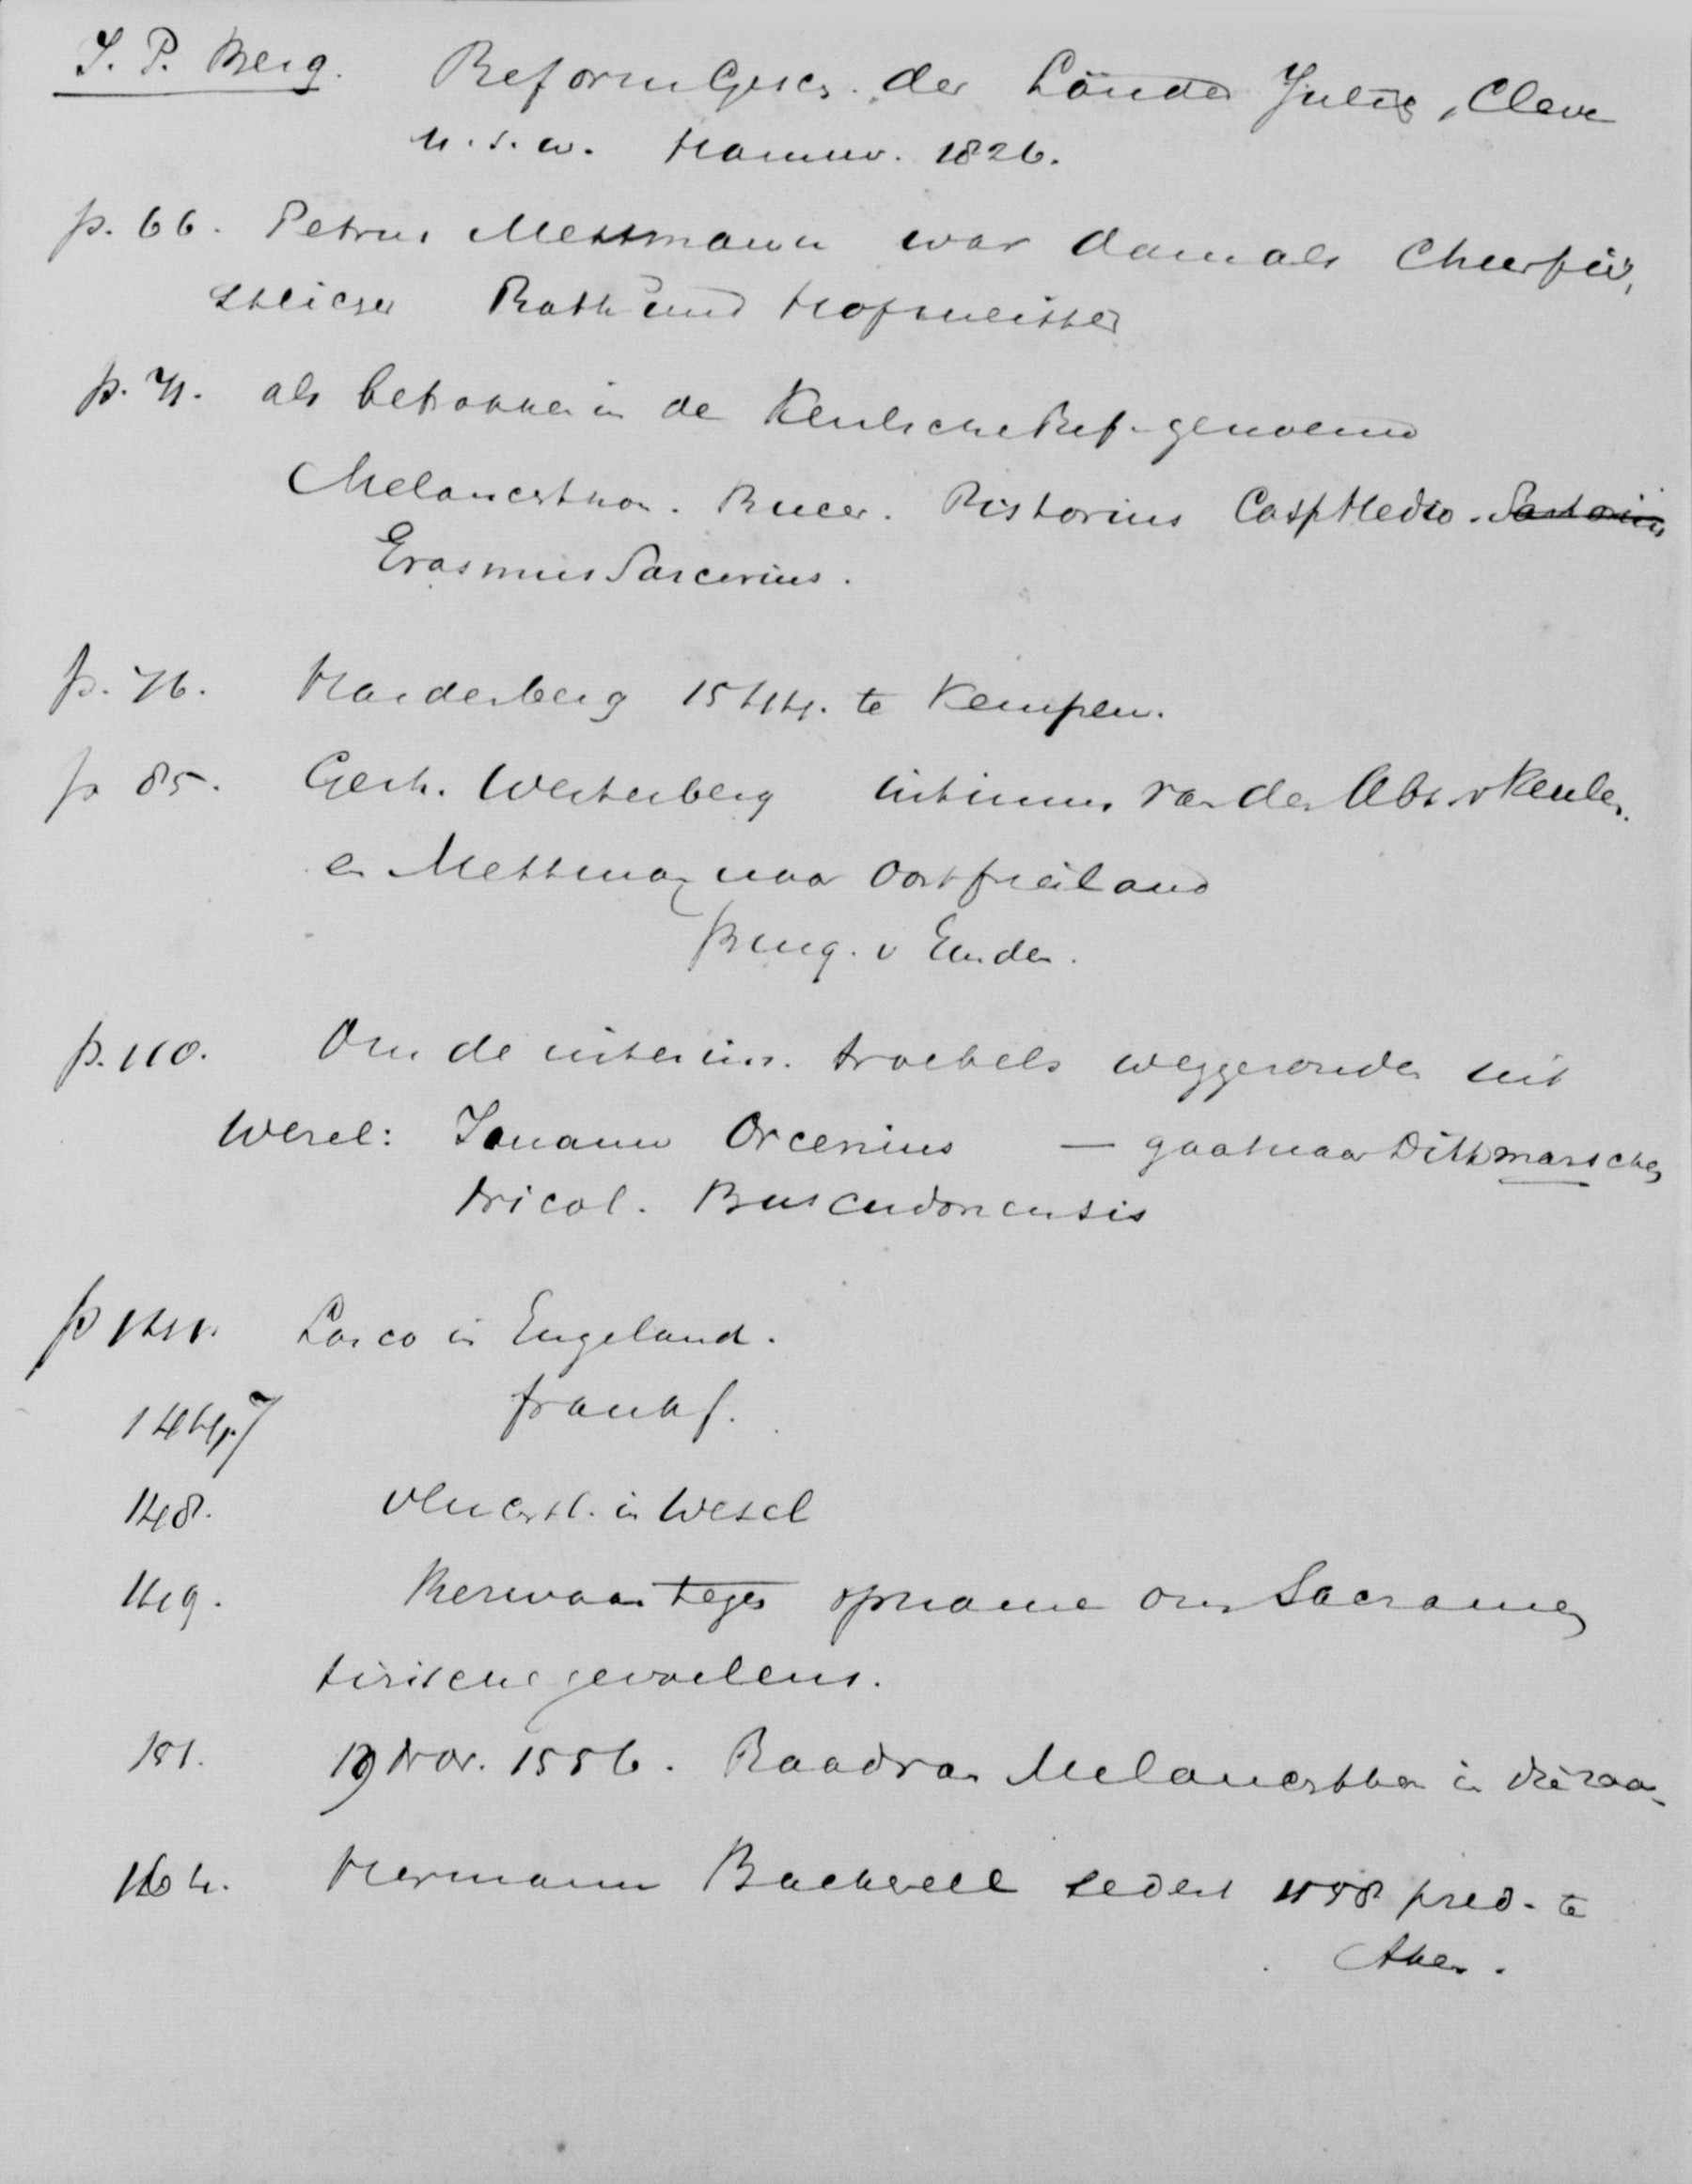 J. P. Berg. Reform Gesch. der Länder Jülich, Cleve
u.s.w. Hamm. 1826.
p. 66. Petrus Mettmann war damals Churfür,
stlicher Rath und Hofmeister
p. 71. als betrokken in de Keulsche Ref. genoemd
Melanchthon. Bucer. Pistorius Casp Hedio. Sartorius
Erasmus Sarcerius.
p. 76. Hardenberg 1544. te Kempen.
p 85. Gerh. Westerberg intimus van den Abs. v Keulen
en Mettman naar Oostfriesland
Burg. v Emden.
p. 110. Om de interim. troebels weggezonden uit
Wesel: Johann Orcenius — gaat naar Dithmarschen
Nicol. Buscudonensis
p 141. Lasco in Engeland.
144. Frankf.
148. Vluchtl. in Wesel
149. Bezwaar tegen opname om Sacramen
tirische gevoelens.
151. 19 Nov. 1556. Raad van Melanchthon in die zaa
164. Hermann Backerell sedert 1558 pred. te
Aken.